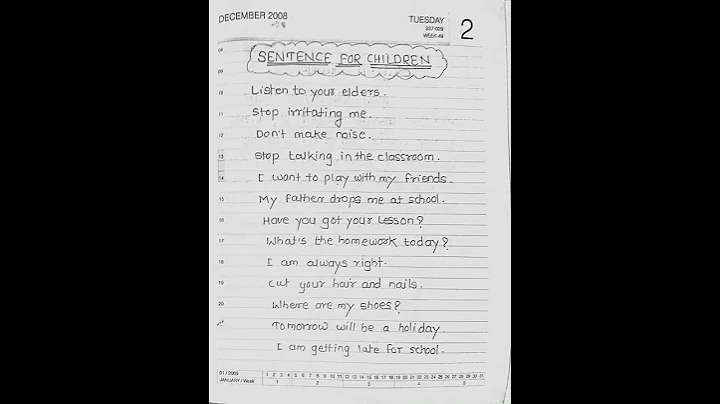 DECEMBER 2008
TUESDAY
337-029
WEEK 49
2
SENTENCE FOR CHILDREN
09
10 Listen to your elders.
11 Stop irritating me.
12 Don't make noise.
13 Stop talking in the classroom.
14 I want to play with my friends.
15 My Father drops me at school.
16 Have you got your Lesson?
17 What's the homework today?
18 I am always right.
19 Cut your hair and nails.
20 Where are my shoes?
Tomorrow will be a holiday.
I am getting late for school.
01 / 2009 1 2 3 4 5 6 7 8 9 10 11 12 13 14 15 16 17 18 19 20 21 22 23 24 25 26 27 28 29 30 31
JANUARY / Week 1 2 3 4 5